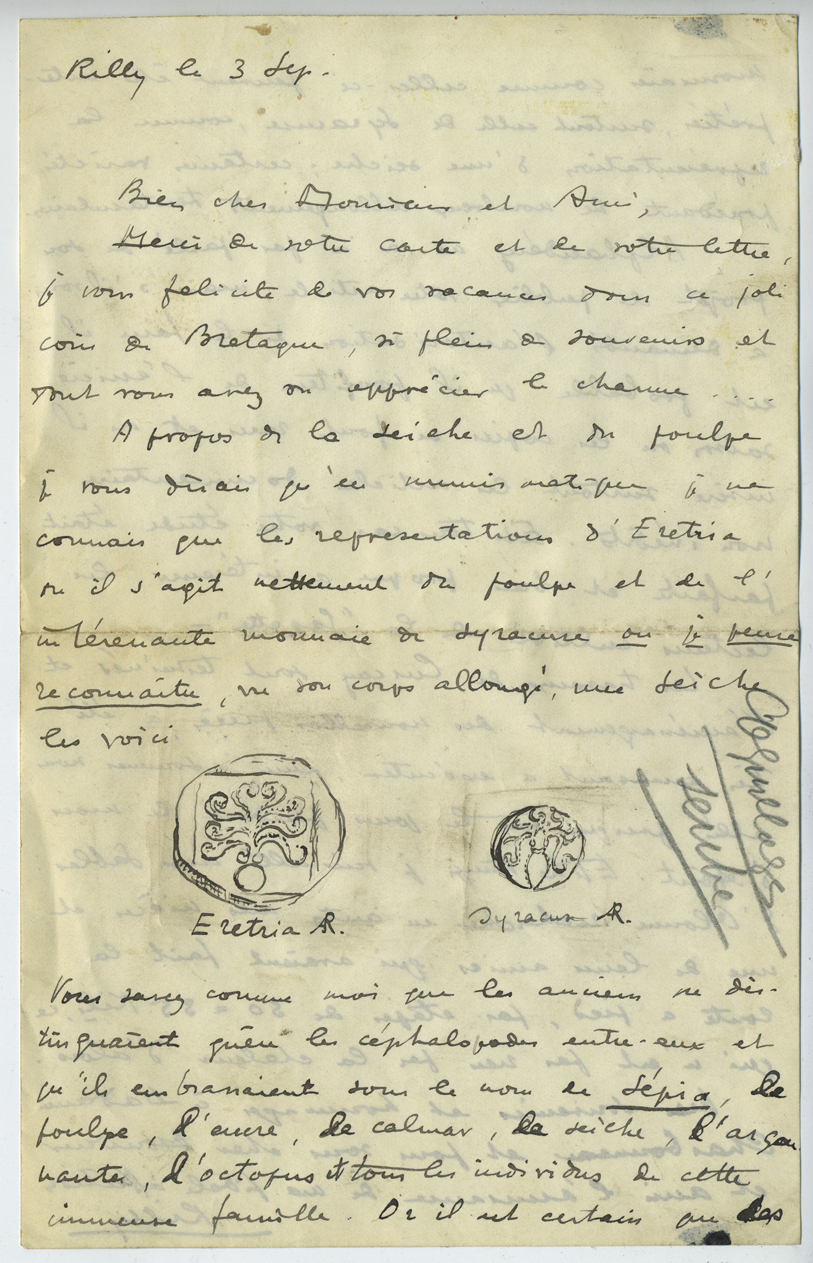 Rilly le 3 Sep.
Bien cher Monsieur et Ami,
Merci de votre carte et de votre lettre,
je vous felicite de vos vacances dans ce joli
coin de Bretagne, si plein de souvenirs et
dont vous avez su apprécier le charme ....
A propos de la seiche et du poulpe
je vous dirais qu'en numismatique je ne
connais que les representations d'Eretria
où il s'agit nettement du poulpe et de l'
intéressante monnaie de Syracuse ou je pense
reconnaître, vu son corps allongé, une seiche
les voici
Coquillages
seiche
Eretria AR.
Syracuse AR.
Vous savez comme moi que les anciens ne dis-
tinguaient guère les céphalopodes entre-eux et
qu'ils embrassaient sous le nom de sépia, de
poulpe, d'encre, de calmar, de seiche, d'argo
nautes, d'octopus et tous les individus de cette
immense famille. Or il est certain que des